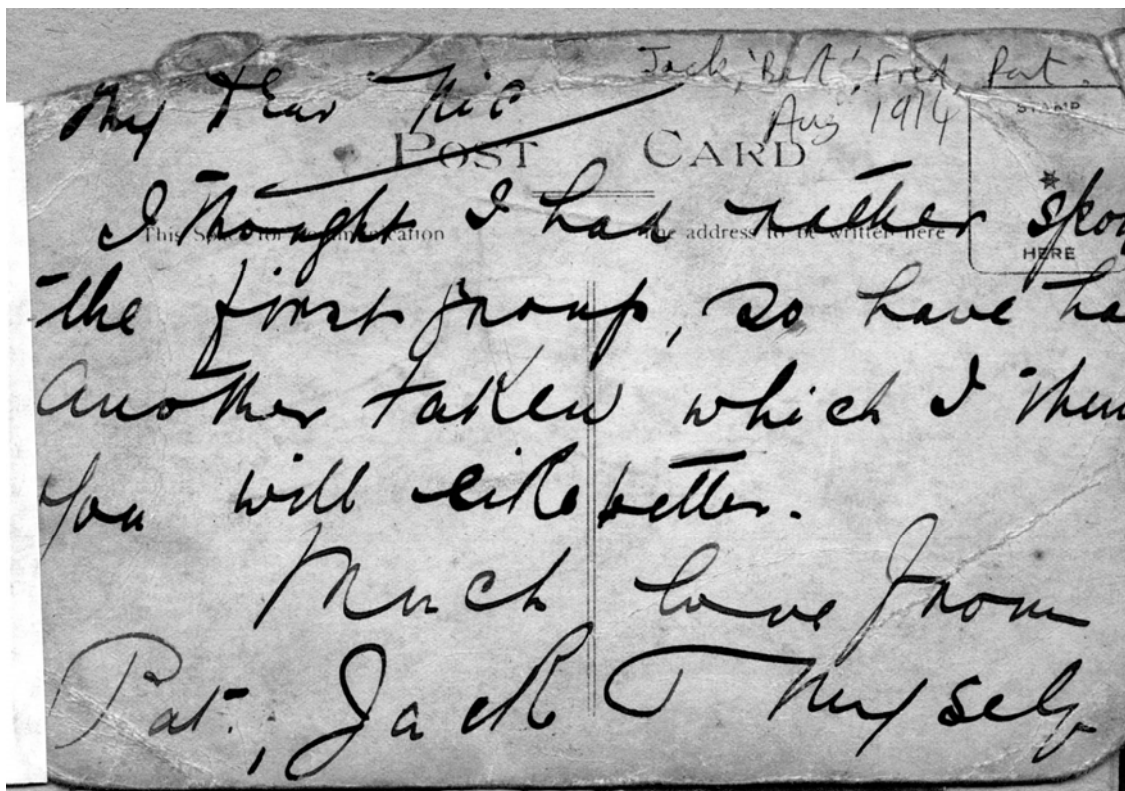 My Dear Nic
Jack, 'Bert', Fred, Pat.
Aug 1914
STAMP
HERE
POST CARD
This Space for Communication
The address to be written here
I thought I had rather spoi
the first group, so have ha
another taken which I thin
you will like better.
Much love from
Pat, Jack & Myself